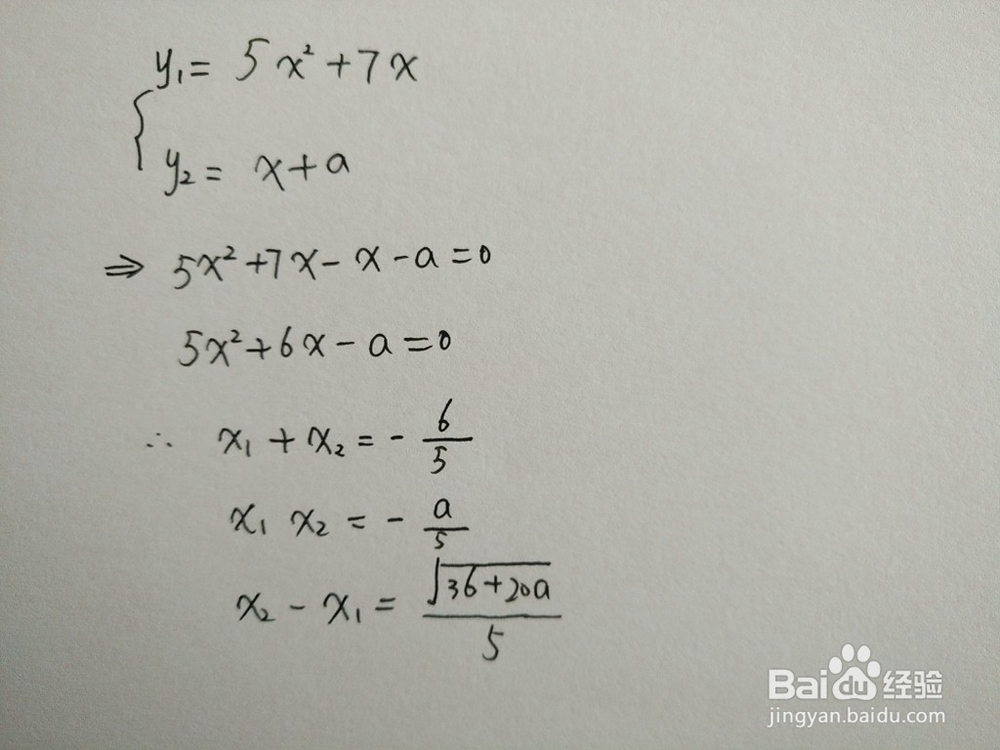 y₁ = 5x² + 7x
y₂ = x + a
⇒ 5x² + 7x - x - a = 0
5x² + 6x - a = 0
∴ x₁ + x₂ = - 6/5
x₁ x₂ = - a/5
x₂ - x₁ = √(36+20a)/5
Baidu 经验
jingyan.baidu.com